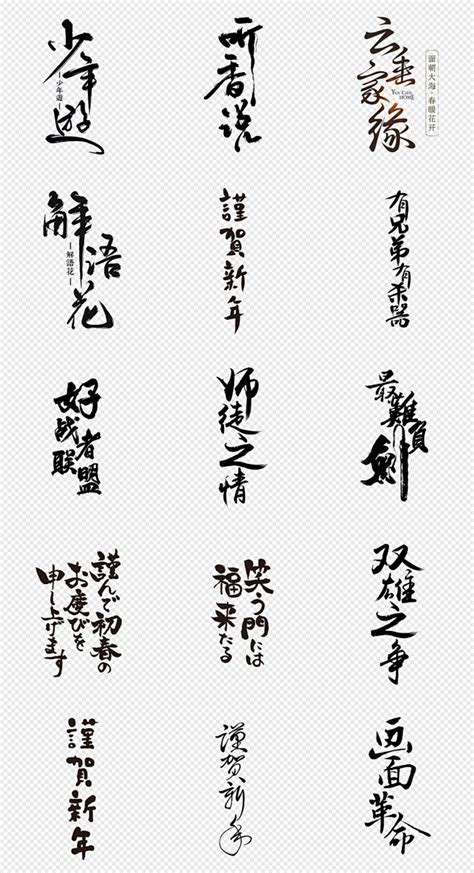 少年遊
少年遊
听香说
云垂家缘
YUN CHUI
HOME
面朝大海·春暖花开
解語花
解語花
謹賀新年
有兄弟有杀器
好战者联盟
师徒之情
最難負劍
謹んで初春の
お慶びを
申し上げます
笑う門には
福来たる
双雄之争
謹賀新年
謹賀新年
画面革命